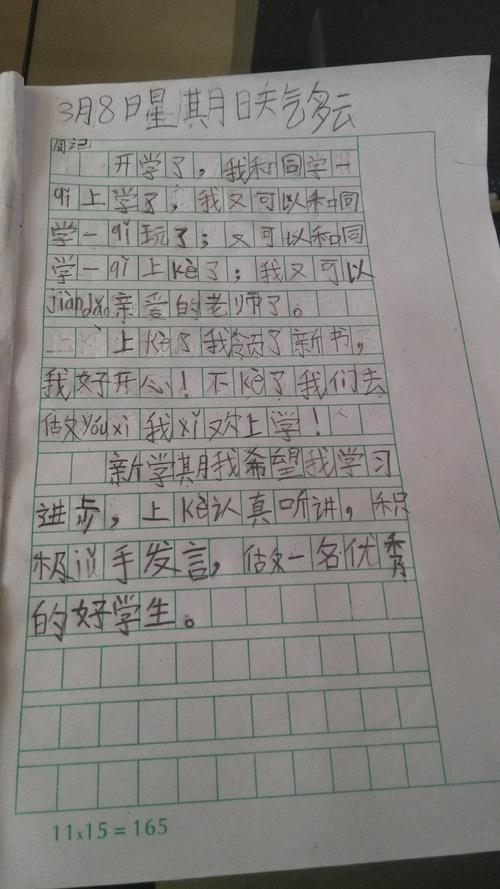 3月8日星期日天气多云
周记
开学了，我和同学一
qǐ上学了，我又可以和同
学一qǐ玩了；又可以和同
学一qǐ上kè了；我又可以
jiàndǎo亲爱的老师了。
上kè了我领了新书，
我好开心！下kè了我们去
做yóuxì我xǐ欢上学！
新学期我希望我学习
进步，上kè认真听讲，积
极jǔ手发言，做一名优秀
的好学生。
11×15=165